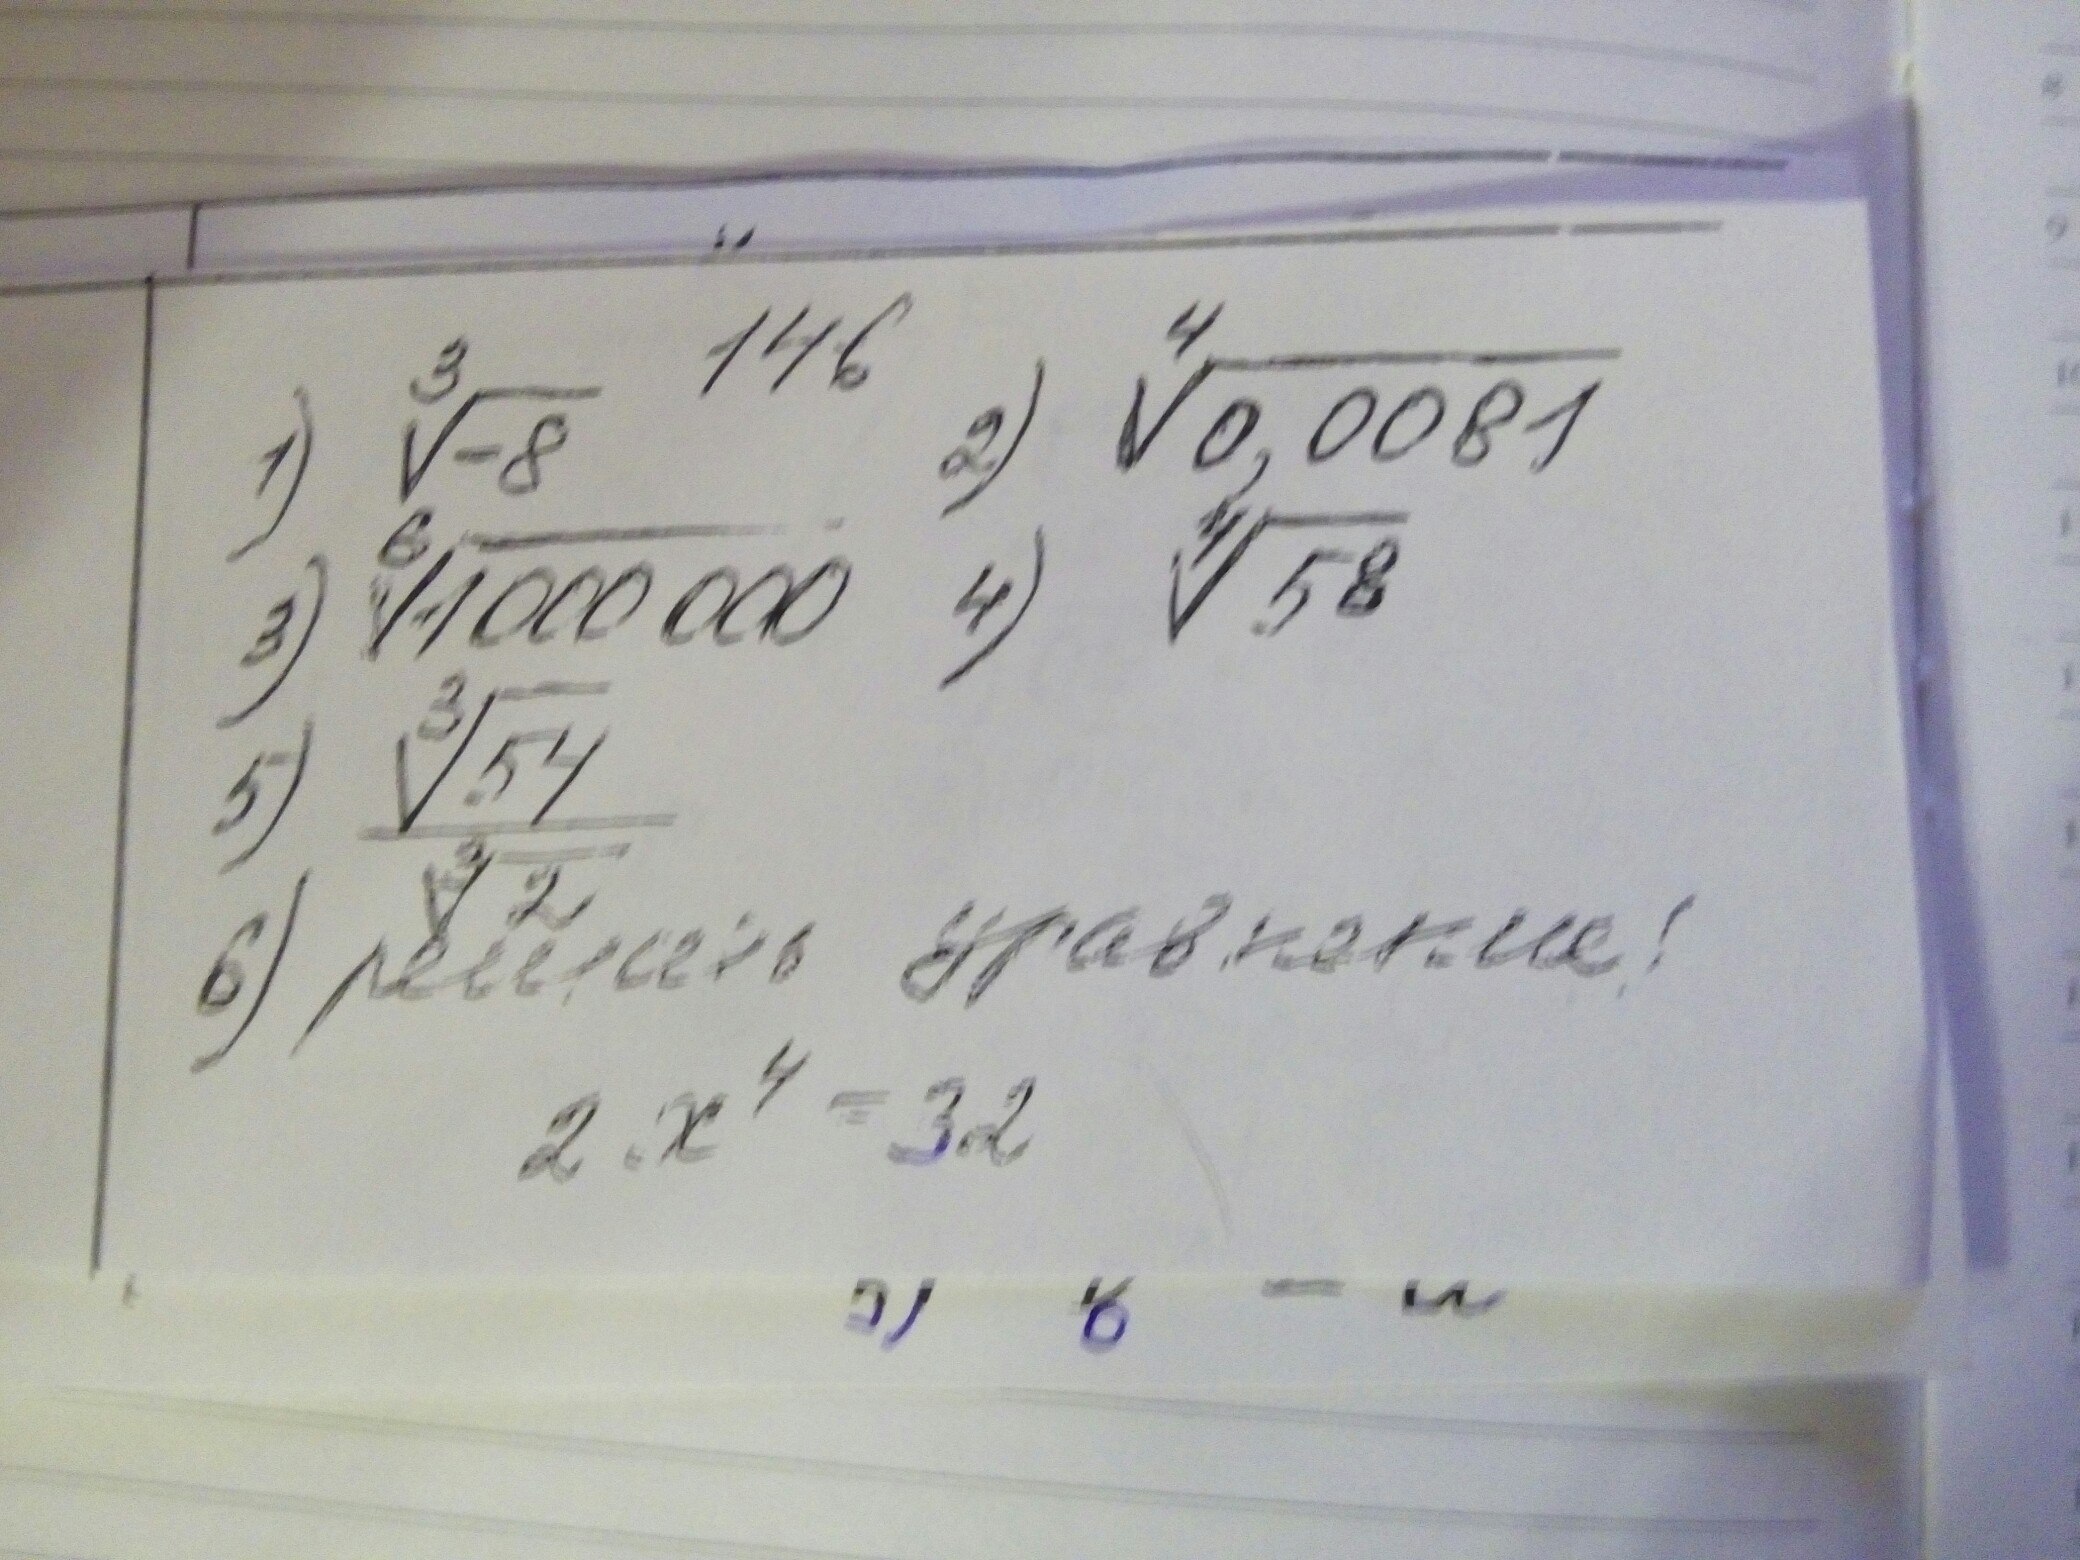 146
1) ∛-8 2) ∜0,0081
3) ⁶√1000 000 4) ∜58
5) ∛54
∛2
6) решить уравнение:
2·x⁴ = 32